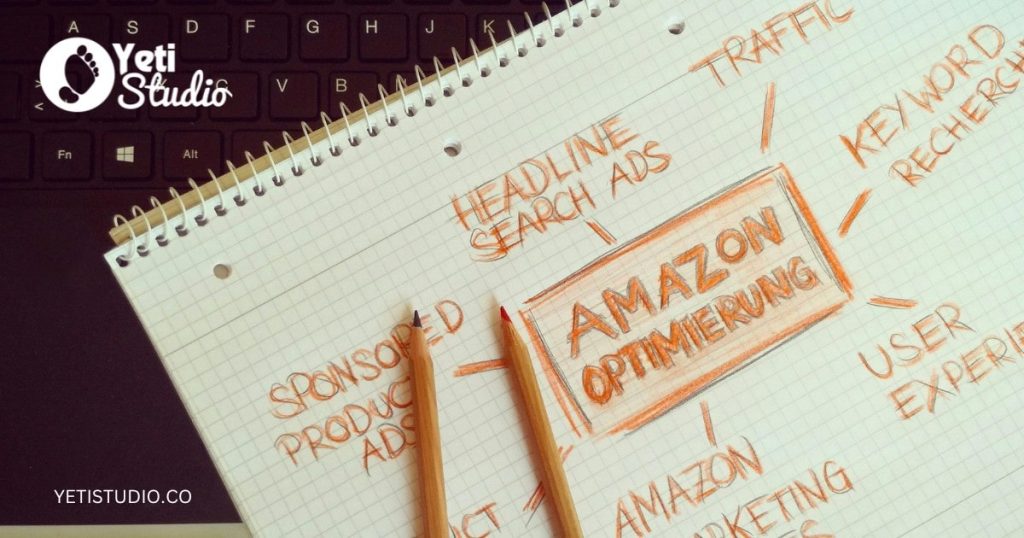 A S D F G H J K
Yeti
Studio
V B N
Fn Alt
TRAFFIC
KEYWORD
RECHERCH
HEADLINE
SEARCH ADS
AMAZON
OPTIMIERUNG
SPONSORED
PRODUCT
ADS
USER
EXPERIE
AMAZON
ARKETING
CT
YETISTUDIO.CO